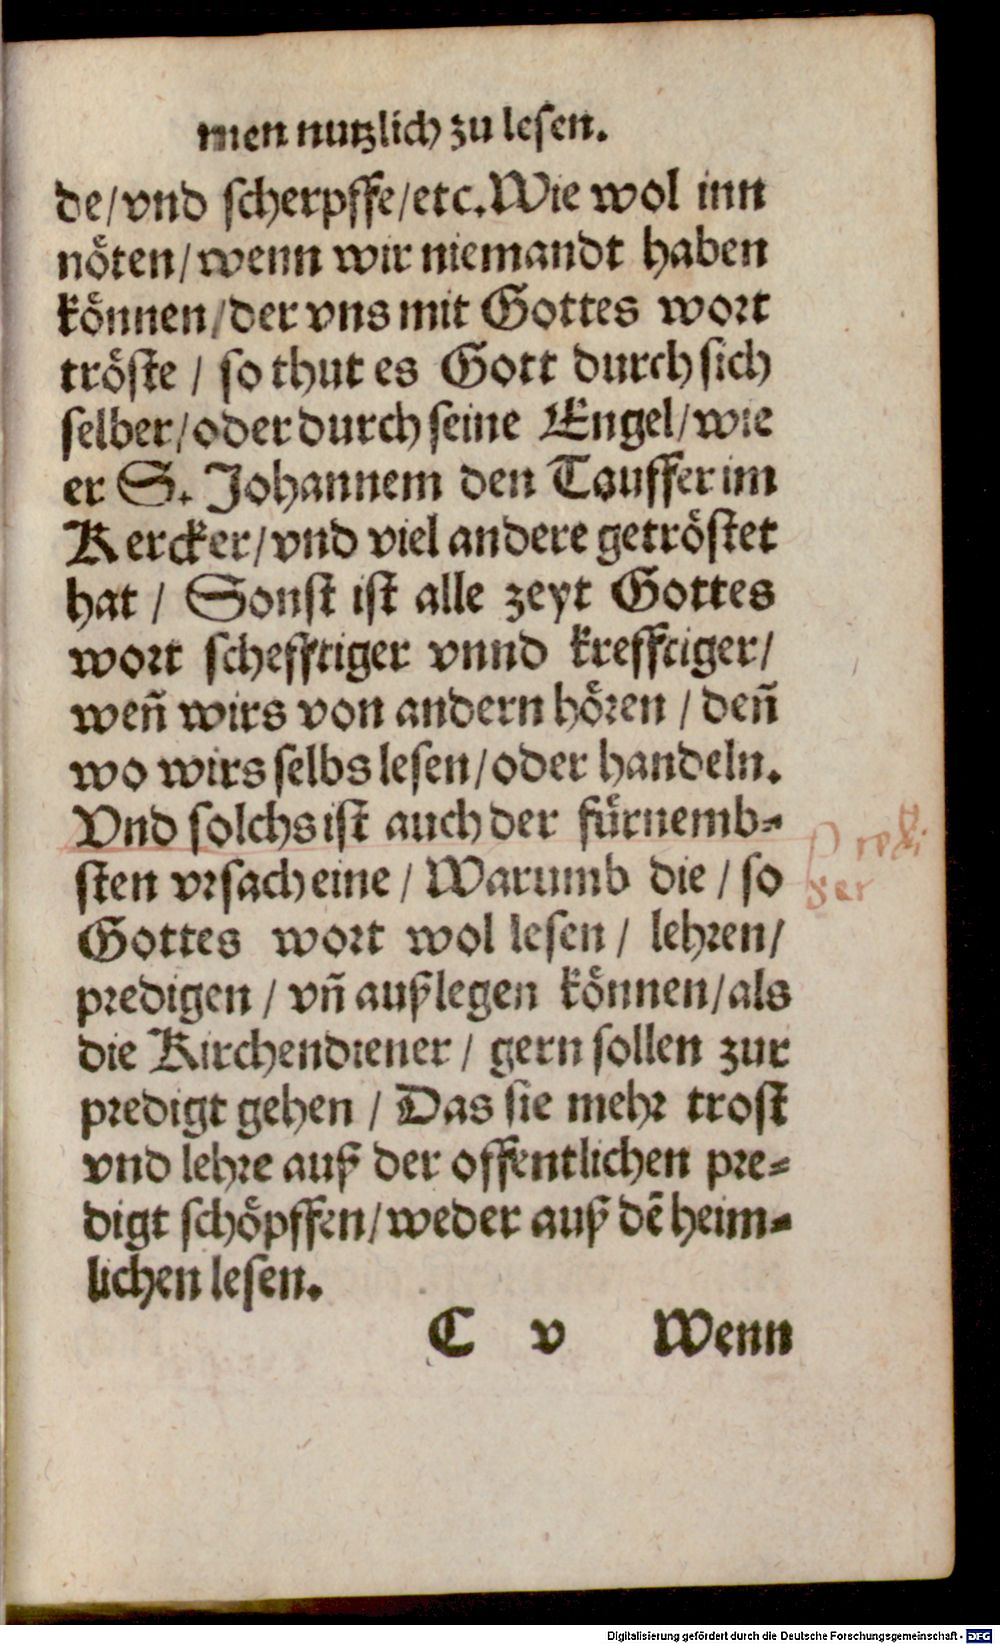 men nutzlich zu lesen.
de/vnd scherpffe/etc. Wie wol inn
nöten/wenn wir niemandt haben
können/der vns mit Gottes wort
tröste / so thut es Gott durch sich
selber/oder durch seine Engel/wie
er S. Johannem den Tauffer im
Kercker/vnd viel andere getröstet
hat / Sonst ist alle zeyt Gottes
wort schefftiger vnnd krefftiger/
weñ wirs von andern hören / deñ
wo wirs selbs lesen/oder handeln.
Vnd solchs ist auch der fürnemb-
sten vrsach eine / Warumb die / so
Gottes wort wol lesen / lehren/
predigen / vñ außlegen können/als
die Kirchendiener / gern sollen zur
predigt gehen / Das sie mehr trost
vnd lehre auß der offentlichen pre-
digt schöpffen/weder auß dẽ heim-
lichen lesen.
C v Wenn
Predi
ger
Digitalisierung gefördert durch die Deutsche Forschungsgemeinschaft - DFG